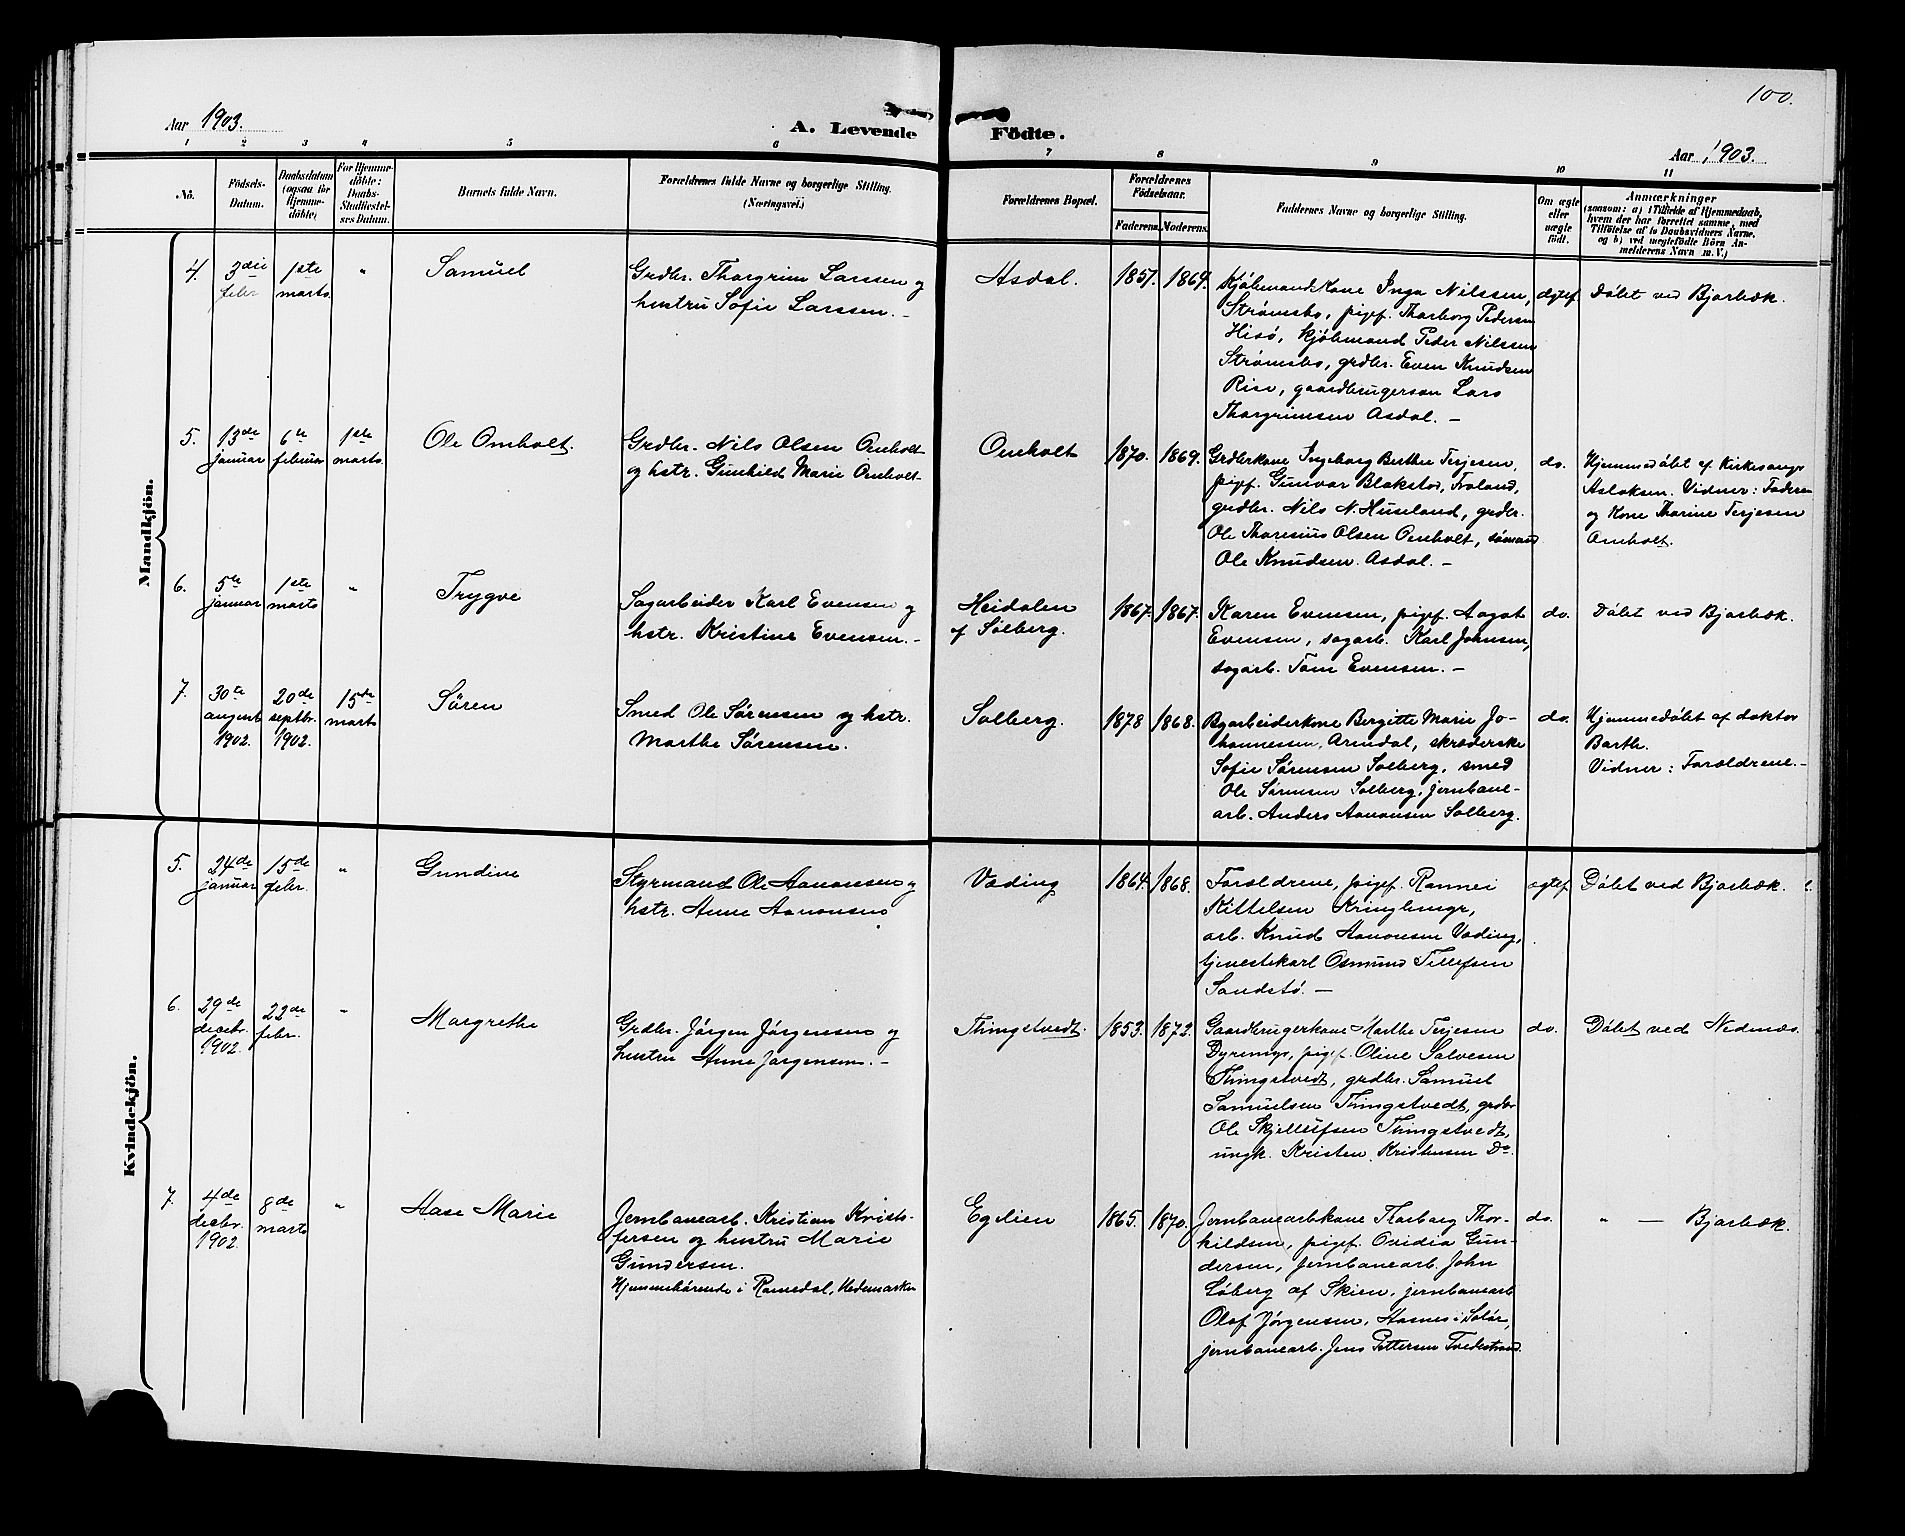 100.
Aar 1903.
A. Levende Födte.
Aar 1903.
1 2 3 4 5 6 7 8 9 10 11
No.
Födsels-
Datum.
Daabsdatum
(ogsaa for
Hjemme-
döbte)
For Hjemme-
döbte:
Daabs-
Stadfæstel-
ses Datum.
Barnets fulde Navn.
Forældrenes fulde Navne og borgerlige Stilling.
(Næringsvei.)
Forældrenes Bopæl.
Forældrenes
Födselsaar.
Faderens. Moderens.
Faddernes Navne og borgerlige Stilling.
Om ægte
eller
uægte
födt.
Anmærkninger
(saasom: a) i Tilfælde af Hjemmedaab,
hvem der har forrettet samme, med
Tilföielse af to Daabsvidners Navne,
og b) ved uegtefödte Börn An-
melderens Navn m. V.)
Mandkjön.
4. 3die
febr
1ste
marts
"
Samuel
Grdbr. Thorgrim Larssen og
hustru Sofie Larssen. —
Asdal.
1857. 1869.
Kjøbmand Kone Inga Nilssen,
Strømsbo, pigef. Thorborg Pedersen
Hisø, kjøbmand Peder Nilssen
Strømsbo, grdbr. Even Knudsen
Rise, gaardbrugersøn Lars
Thorgrimsen Asdal. —
ægtef.
Døbt ved Bjorbæk.
5. 13de
januar
6te
februar
1ste
marts
Ole Omholt.
Grdbr. Nils Olsen Omholt
og hstr. Gunhild Marie Omholt
Omholt
1870. 1869.
Grdbrkone Ingeborg Berthe Terjesen,
pigef. Gunvor Blakstad, Froland,
grdbr. Nils N. Huseland, grdbr.
Ole Thoresius Olsen Omholt, sømand
Ole Knudsen Asdal. —
do.
Hjemmedøbt af Kirkesanger
Aslaksen. Vidner: Faderen
og Kone Thorine Terjesen
Omholt.
6. 5te
januar
1ste
marts
"
Trygve
Sagarbeider Karl Evensen og
hstr. Kristine Evensen. —
Heidalen
af Solberg.
1867. 1867.
Karen Evensen, pigef. Aagot
Evensen, sagarb. Karl Johnsen,
sagarb. Tom Evensen. —
do.
Døbt ved Bjorbæk.
7. 30te
august
1902
20de
septbr.
1902.
15de
marts
Søren
Smed Ole Sørensen og hstr.
Marthe Sørensen.
Solberg.
1878 1868.
Byarbeiderkone Bergitte Marie Jo-
hannessen, Arendal, skræderske
Sofie Sørensen Solberg, smed
Ole Sørensen Solberg, jernbane-
arb. Anders Aanonsen Solberg.
do.
Hjemmedøbt af doktor
Barth.
Vidner: Forældrene. —
Kvindekjön.
5. 24de
januar
15de
febr.
"
Gundine
Styrmand Ole Aanonsen og
hstr. Anne Aanonsen
Vøding
1864. 1868.
Forældrene, pigef. Rannei
Kittelsen
arb. Knud Aanonsen Vøding,
tjenestekarl Osmund Tellefsen
Sandstø. —
ægtef.
Døbt ved Bjorbæk.
6. 29de
decbr.
1902.
22de
febr.
"
Margrethe
Grdbr. Jørgen Jørgensen og
hustru Anne Jørgensen. —
Thingstvedt.
1853. 1872.
Gaardbrugerkone Marthe Terjesen
pigef. Oline Salvesen
Thingstvedt, grdbr. Samuel
Samuelsen Thingstvedt, grdbr
Ole Skjellufsen Thingstvedt,
ungk. Kristen Kristensen Do.
do.
Døbt ved Nednæs.
7. 4de
decbr.
1902.
8de
marts
"
Aase Marie
Jernbanearb. Kristian Krist-
fersen og hustru Marie
Gundersen.
Hjemmehørende i Romedal, Hedemarken
Eglien
1865. 1870.
Jernbanearbkone Thorborg Thor-
kildsen, pigef. Ovidia Gun-
dersen, jernbanearb. John
Løberg af Skien, jernbanearb
Olaf Jørgensen, Hasnes i Solør,
jernbanearb. Jens Pettersen Tvedestrand.
do.
" — Bjorbæk.